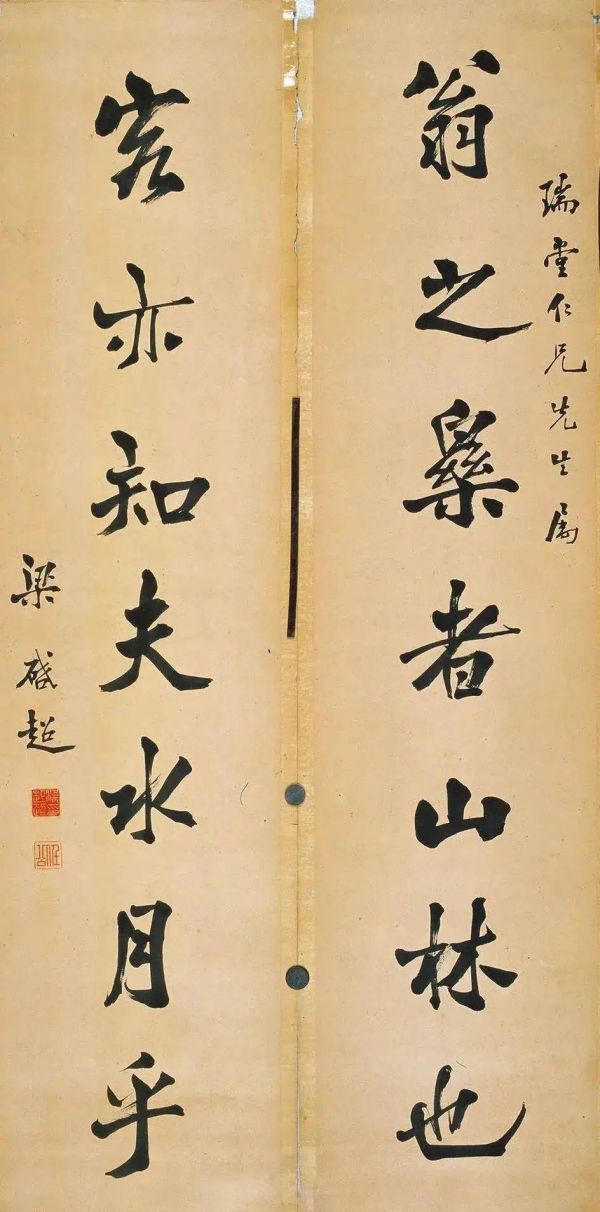 瑞堂仁兄先生属
翁之樂者山林也
客亦知夫水月乎
梁啟超